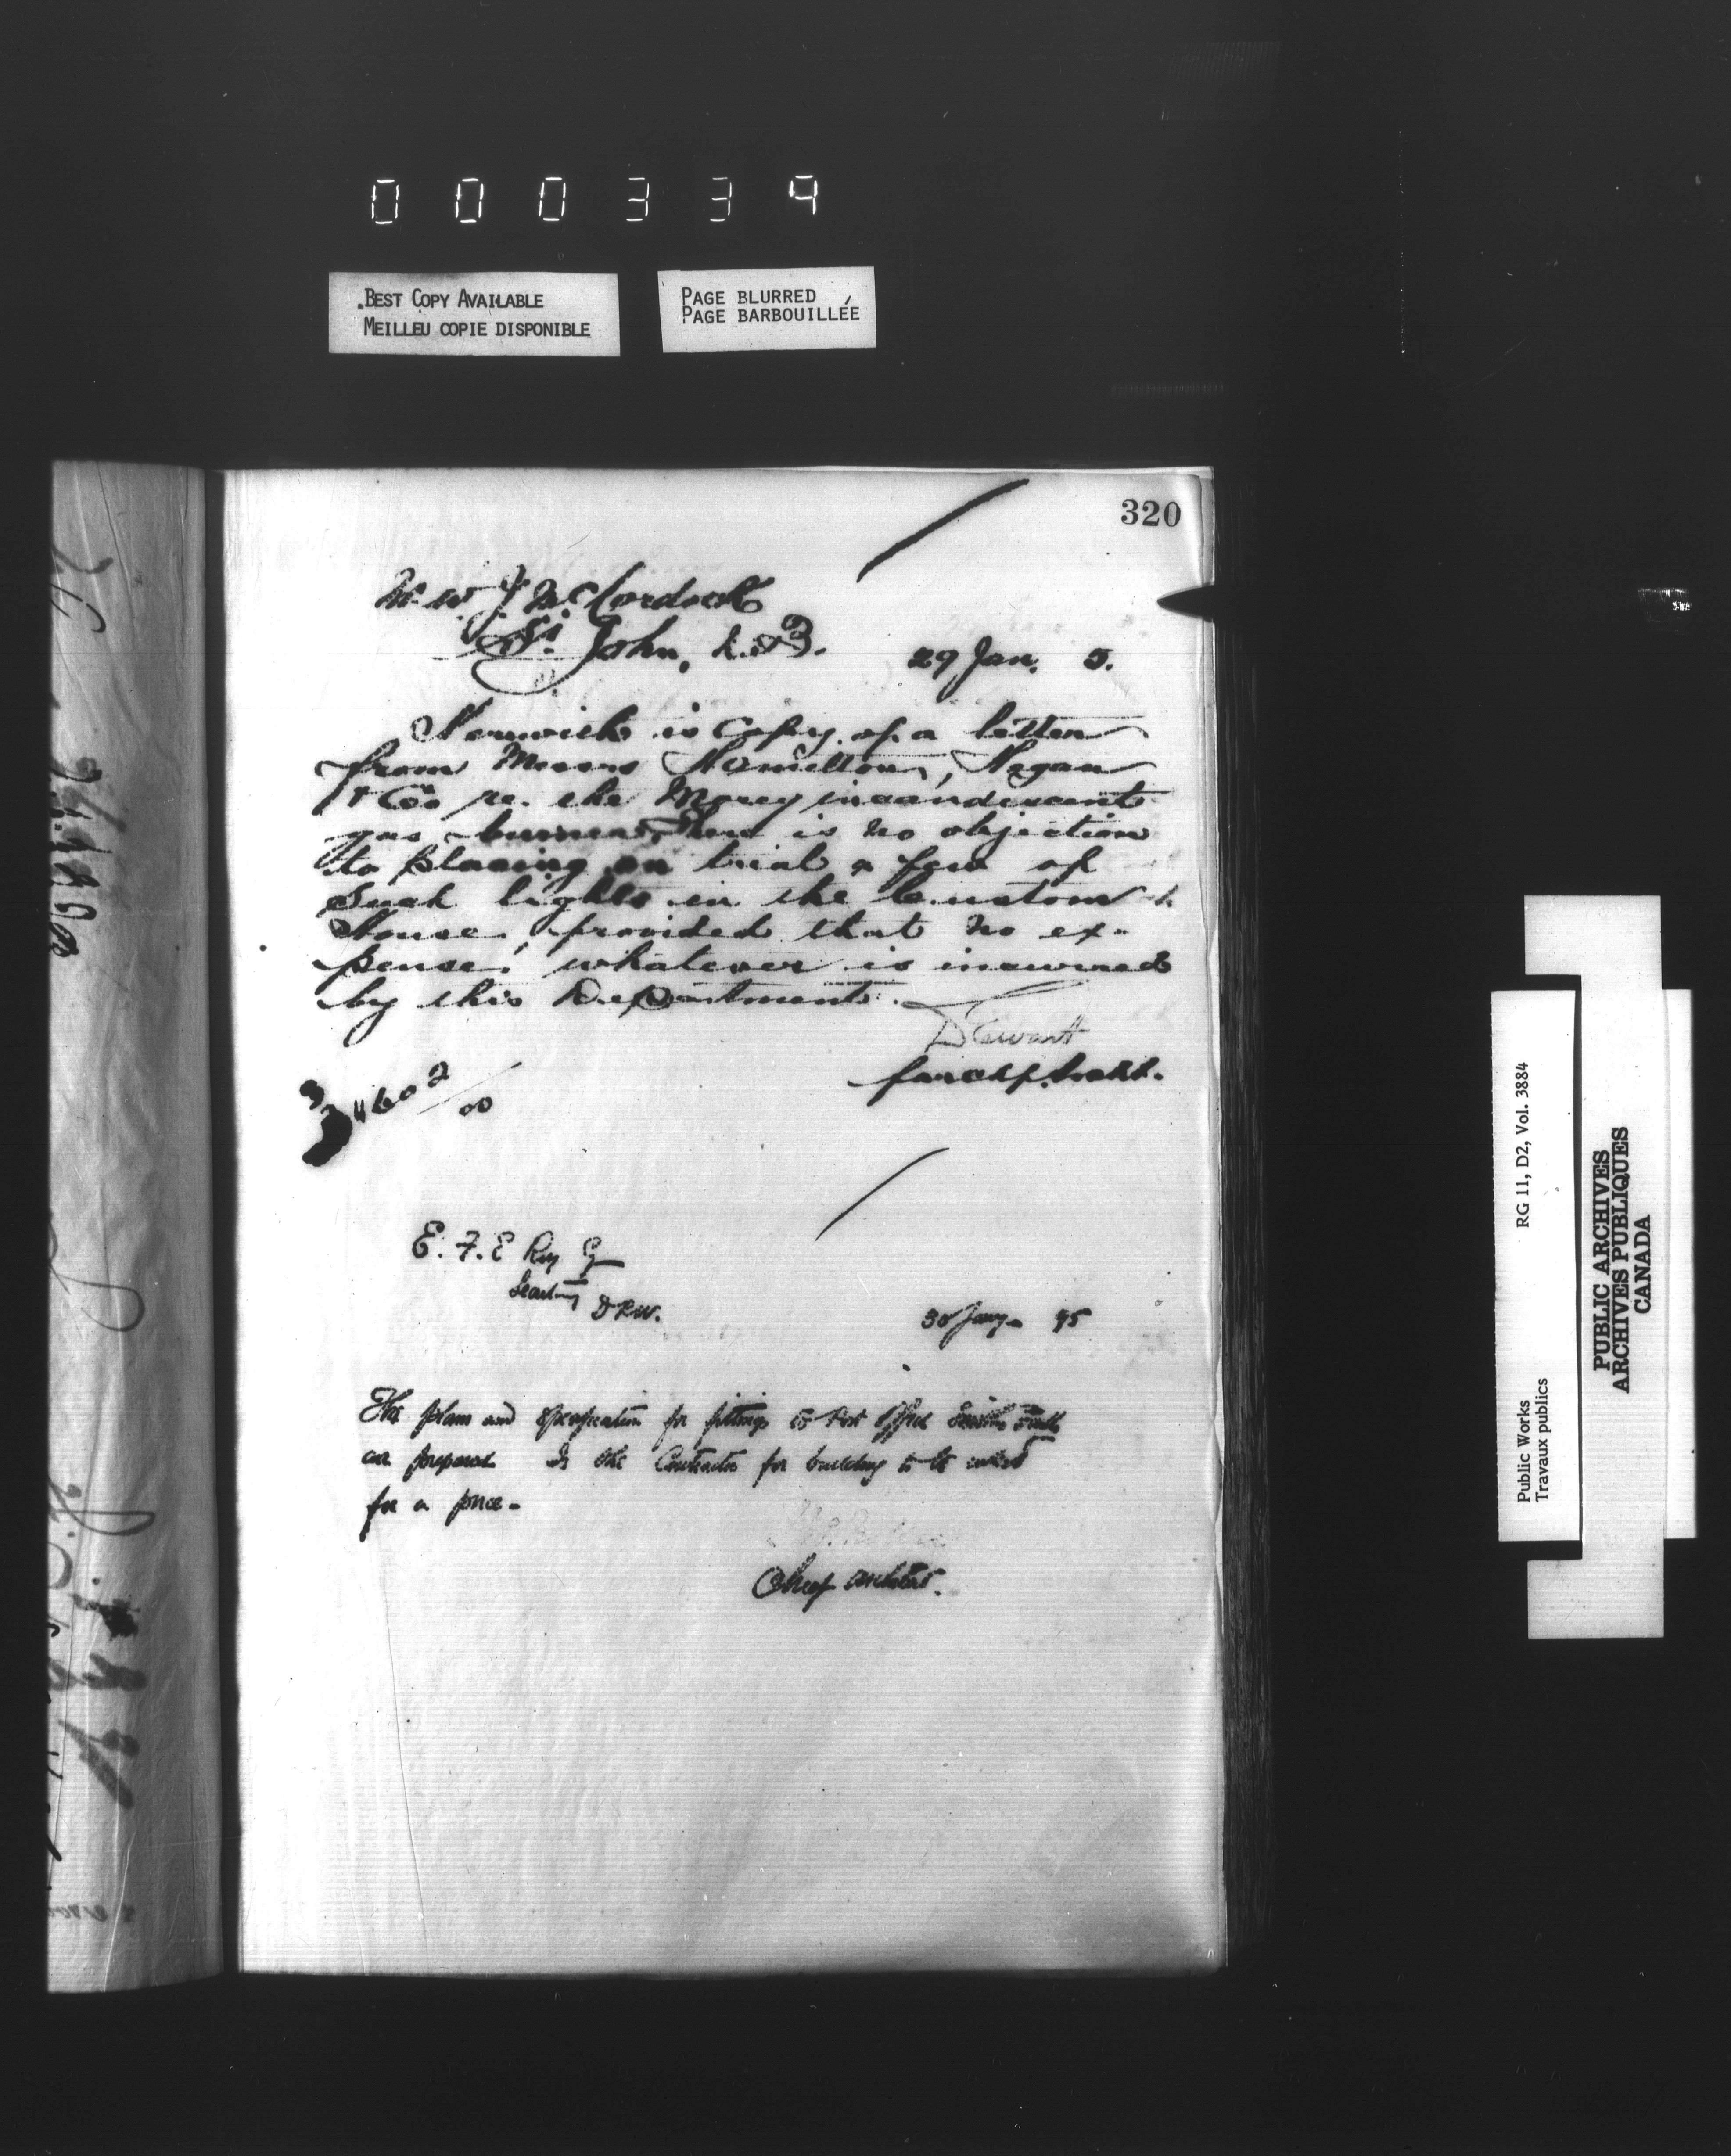 000334
BEST COPY AVAILABLE
MEILLEU COPIE DISPONIBLE
PAGE BLURRED
PAGE BARBOUILLÉE
320
St. John, N.B.
29 Jan. 5.
Herewith is copy of a letter
from Messrs Hamilton, Hogan
& Co re. the incandescent
gas burners, there is no objection
to placing on trial a few of
such lights in the Custom
House, provided that no ex-
pense whatever is incurred
by this Department.
D Ewart
for Chf. Archt.
E. F. E Roy
Secretary
D P W.
30 Jany 95
The plans and specification for fittings to Post Office Smiths Falls
are prepared Is the Contractor for building to be invited
for a price -
Chief Architect.
RG 11, D2, Vol. 3884
Public Works
Travaux publics
PUBLIC ARCHIVES
ARCHIVES PUBLIQUES
CANADA